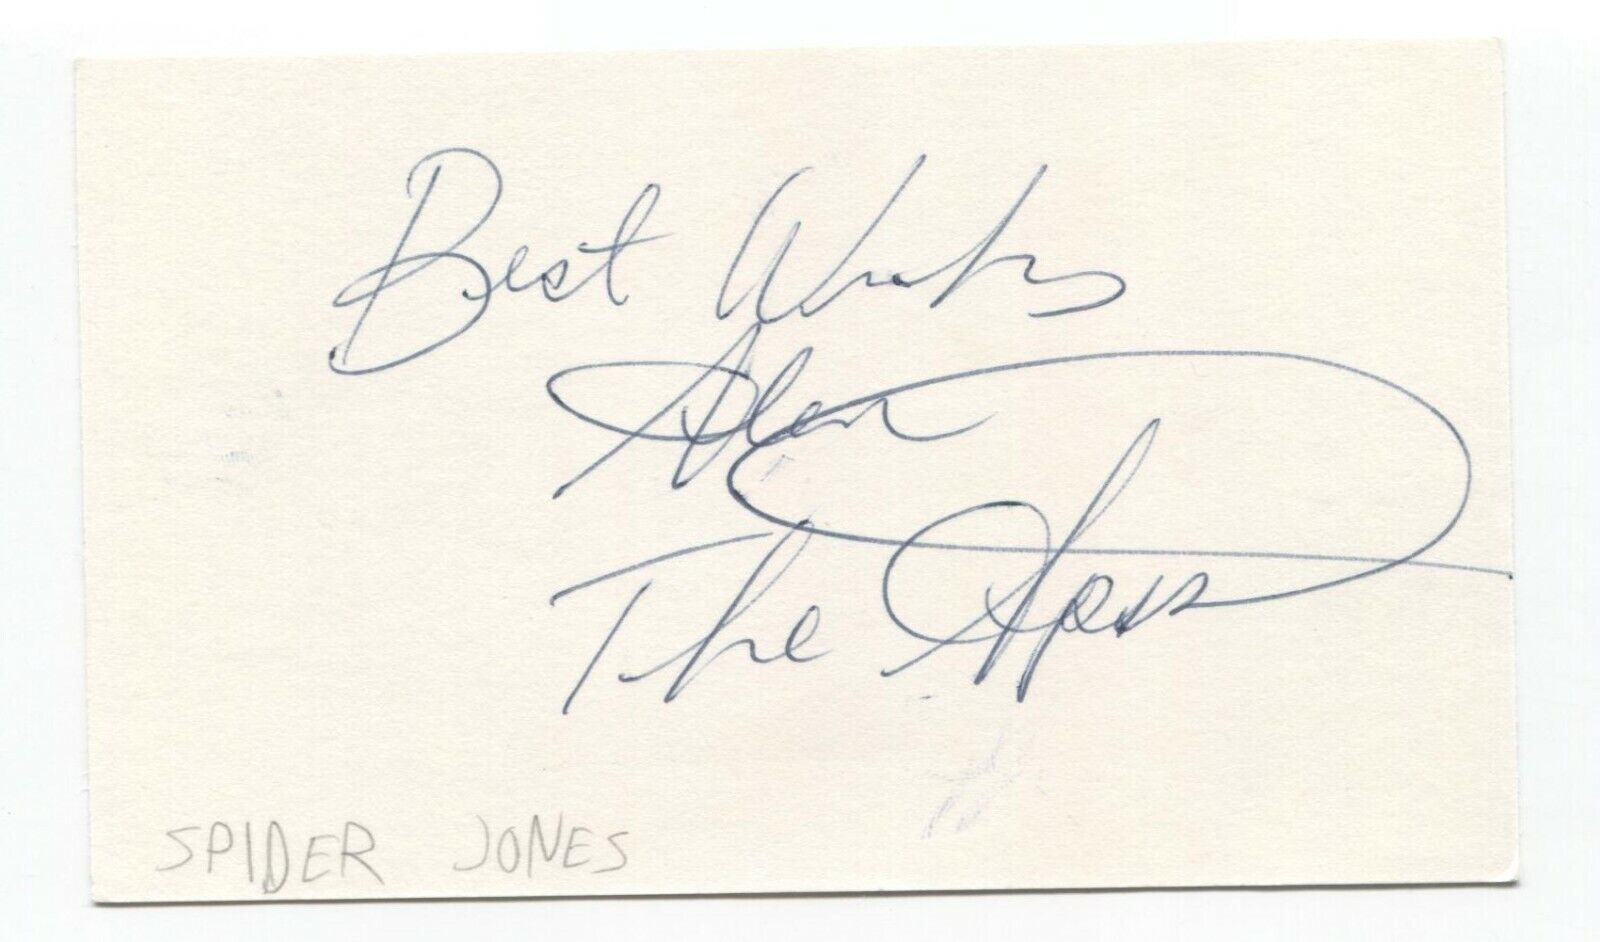 Best Wishes
Alen
The
SPIDER JONES